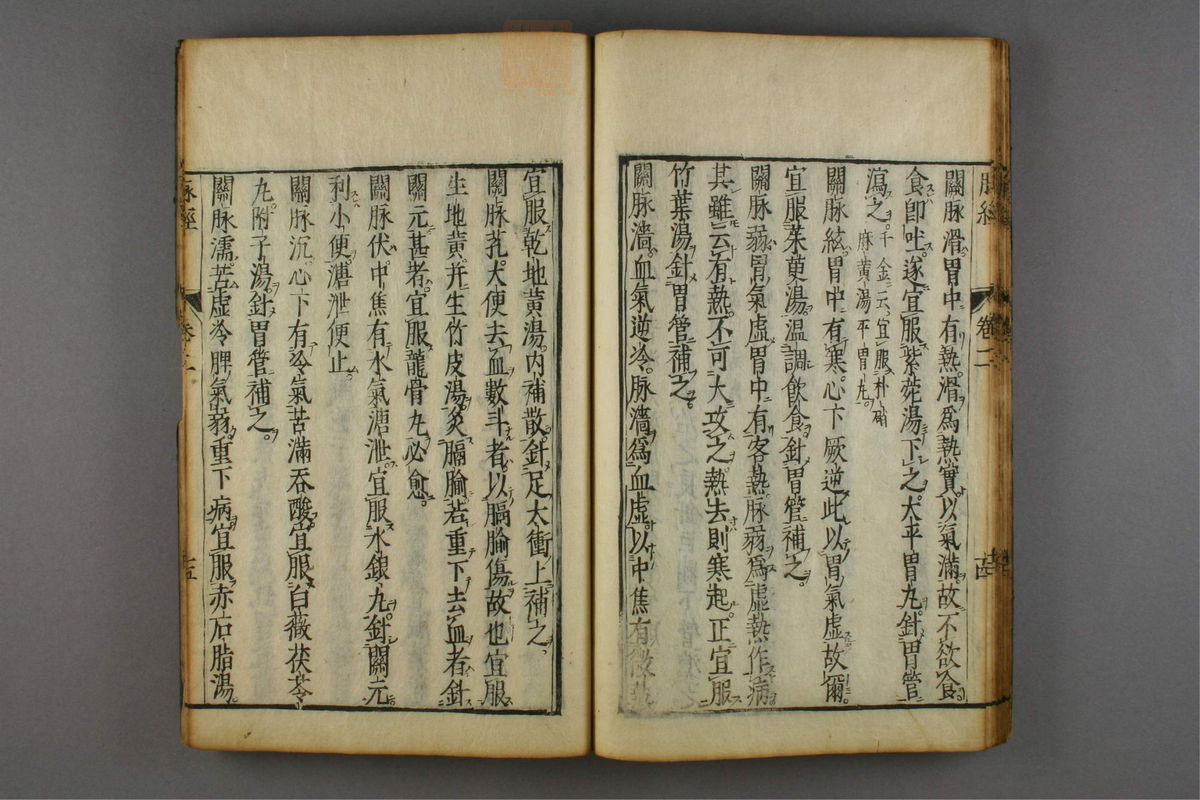 關脉滑胃中有熱滑爲熱實以氣滿故不欲食
食卽吐逆宜服紫菀湯下之大平胃丸針胃管
瀉之千金云宜服朴硝
麻黄湯平胃丸
關脉絃胃中有寒心下厥逆此以胃氣虛故爾
宜服茱萸湯温調飲食針胃管補之
關脉弱胃氣虛胃中有客熱脉弱爲虛熱作病
其雖云有熱不可大攻之熱去則寒起正宜服
竹葉湯針胃管補之
關脉濇血氣逆冷脉濇爲血虛以中焦有微熱
宜服乾地黄湯内補散針足太衝上補之
關脉芤大便去血數斗者以膈腧傷故也宜服
生地黄并生竹皮湯灸膈腧若重下去血者針
關元甚者宜服龍骨丸必愈
關脉伏中焦有水氣溏泄宜服水銀丸針關元
利小便溏泄便止
關脉沉心下有冷氣苦滿吞酸宜服白薇茯苓
丸附子湯針胃管補之
關脉濡苦虛冷脾氣弱重下病宜服赤石脂湯
脉經
卷二